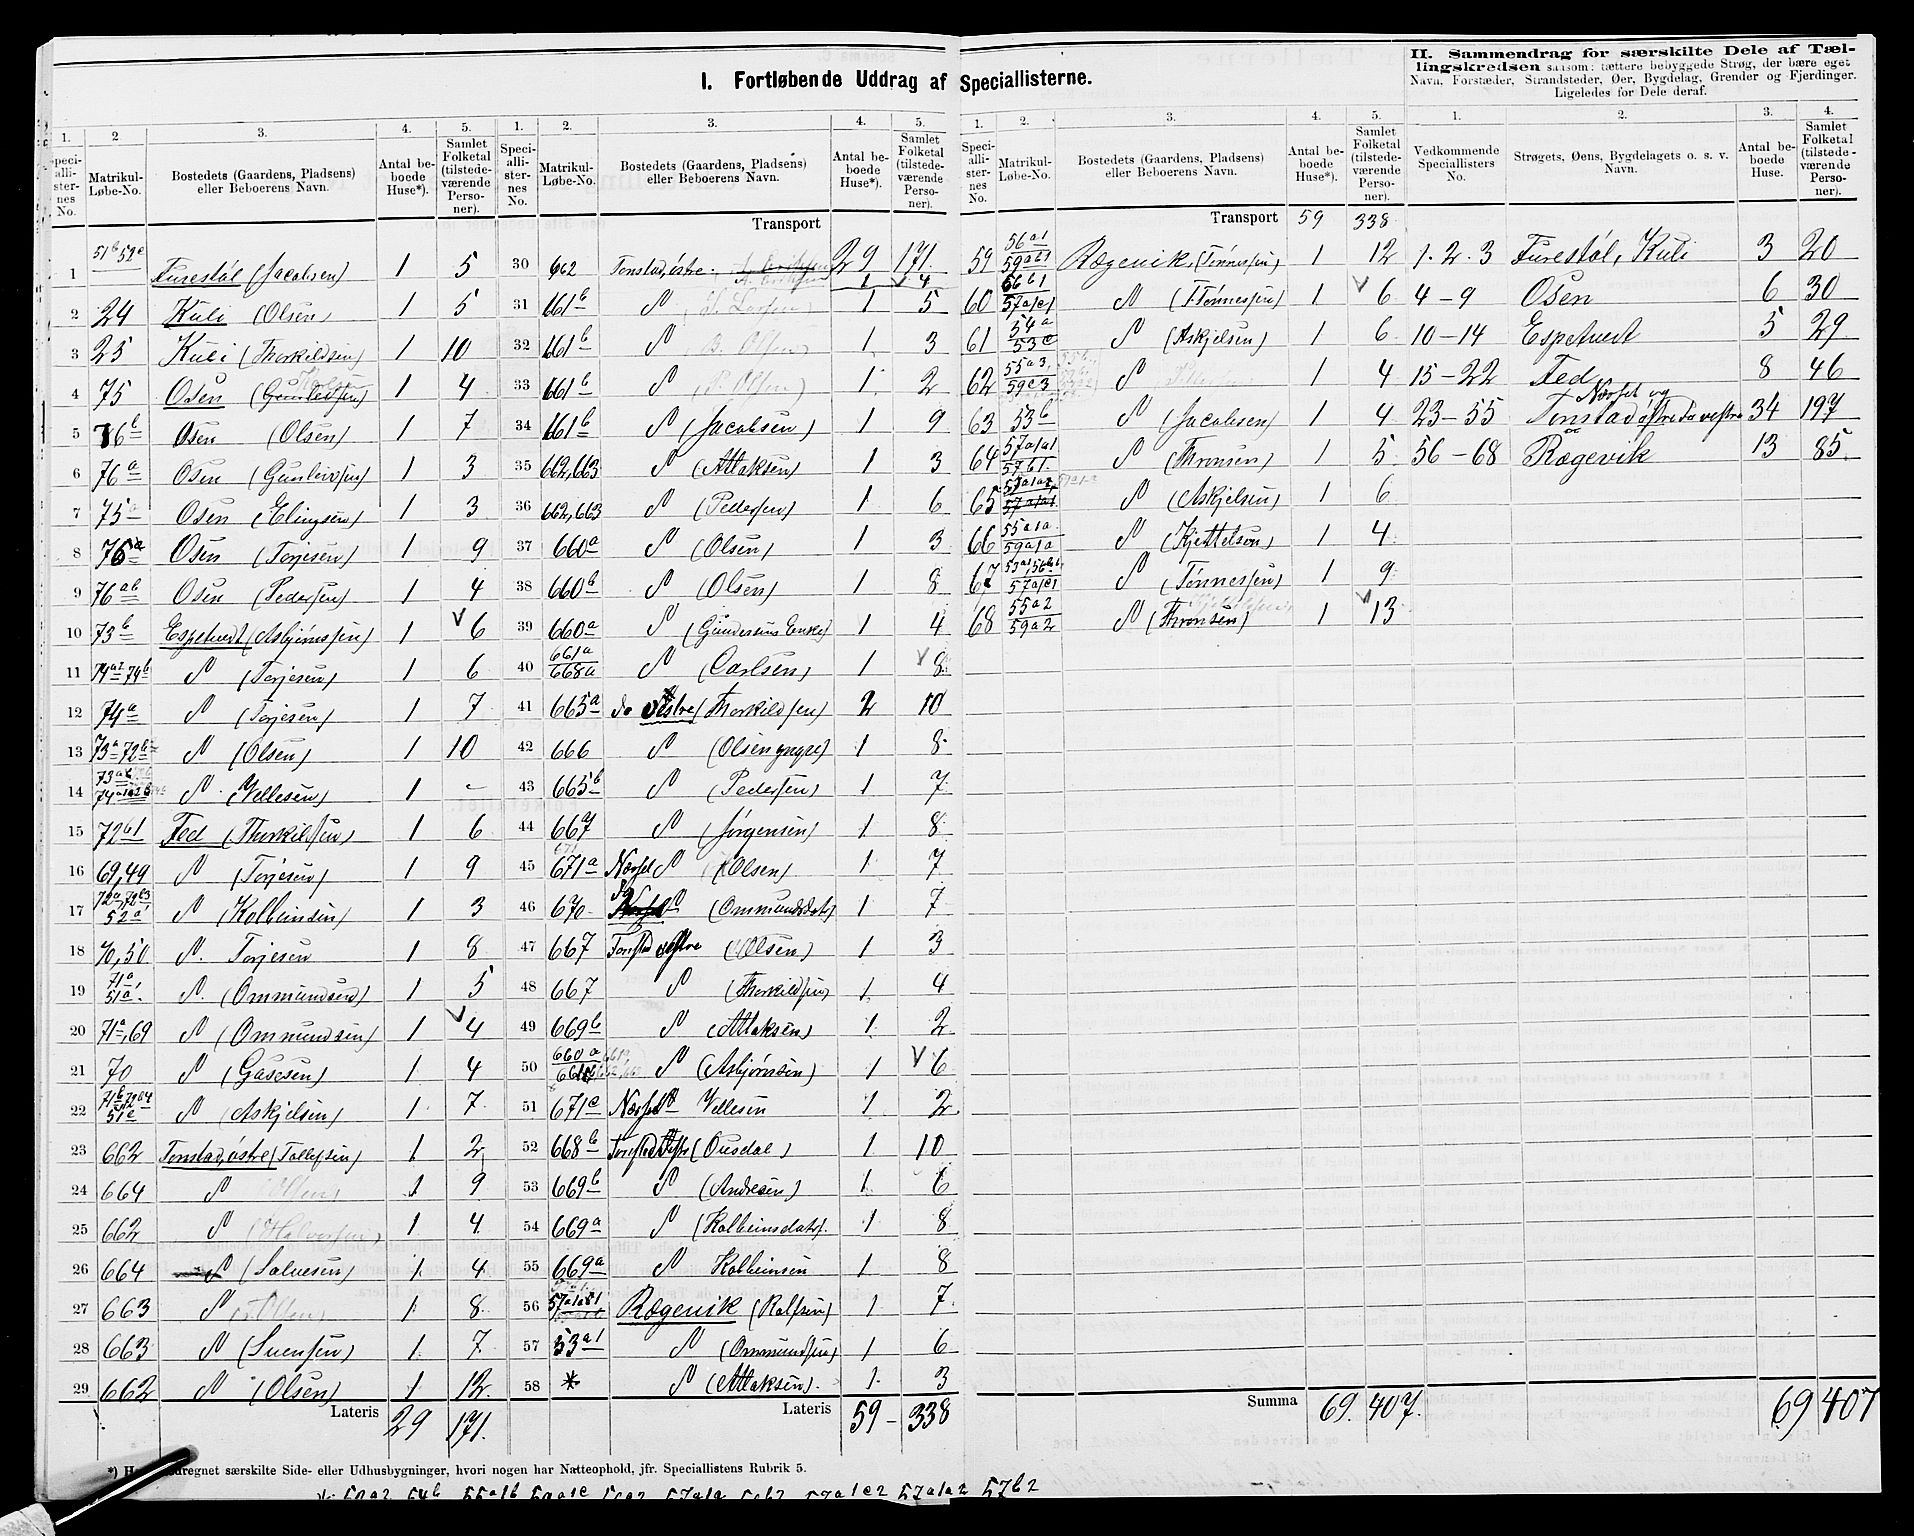 I. Fortløbende Uddrag af Speciallisterne.
II. Sammendrag for særskilte Dele af Tællingskredsen saasom: tættere bebyggede Strøg, der bære eget Navn, Forstæder, Strandsteder, Øer, Bygdelag, Grender og Fjerdinger. Ligeledes for Dele deraf.
1. 2 3. 4. 5. 1. 2. 3. 4. 5. 1. 2. 3. 4. 5. 1. 2. 3. 4.
Speciallisternes No. Matrikul-Løbe-No. Bostedets (Gaardens, Pladsens) eller Beboerens Navn. Antal beboede Huse*). Samlet Folketal (tilstedeværende Personer).
Speciallisternes No. Matrikul-Løbe-No. Bostedets (Gaardens, Pladsens) eller Beboerens Navn. Antal beboede Huse*). Samlet Folketal (tilstedeværende Personer).
Speciallisternes No. Matrikul-Løbe-No. Bostedets (Gaardens, Pladsens) eller Beboerens Navn. Antal beboede Huse*). Samlet Folketal (tilstedeværende Personer).
Vedkommende Speciallisters No. Strøgets, Øens, Bygdelagets o. s. v. Navn. Antal beboede Huse. Samlet Folketal (tilstedeværende Personer).
1 51b 52c Furestøl (Jacobsen) 1 5
2 24 Kuli (Olsen) 1 5
3 25 Kuli (Thorkildsen) 1 10
4 75 Osen (Gunleifsen) 1 4
5 76b Osen (Olsen) 1 7
6 76a Osen (Gunleivsen) 1 3
7 75a Osen (Elingsen) 1 3
8 76a Osen (Torjesen) 1 9
9 76ab Osen (Pedersen) 1 4
10 73b Espetvedt (Asbjørnssen) 1 v 6
11 74a2 74b " (Torjesen) 1 6
12 74a " (Torjesen) 1 7
13 73a 72b " (Olsen) 1 10
14 " (Vellesen) 1 -
15 72b1 Fed (Thorkildsen) 1 6
16 69,49 " (Torjesen) 1 9
17 52a " (Kolbeinsen) 1 3
18 70,50 " Torjesen 1 8
19 71a 51a " (Ommundsen) 1 5
20 71a,69 " (Ommundsen) 1 v 4
21 70 " (Gasesen) 1 4
22 51c " (Askjelsen) 1 7
23 662 Tonstad, østre (Tollefsen) 1 2
24 664 " (Olsen) 1 9
25 662 " (Halvorsen) 1 4
26 664 " (Salvesen) 1 4
27 663 " (Olsen) 1 8
28 663 " (Svensen) 1 7
29 662 " (Olsen) 1 12
Lateris 29 171.
Transport 29 171.
30 662 Tonstad, østre. A. Eriksen 1 v 4
31 661b " (Larsen) 1 5
32 661b " (B. Olsen) 1 3
33 661b " (Olsen) 1 2
34 661b " (Jacobsen) 1 9
35 662,663 " (Atlaksen) 1 3
36 662,663 " (Pedersen) 1 6
37 660a " (Olsen) 1 3
38 660b " (Olsen) 1 8
39 660a " (Gundersens Enke) 1 4
40 661a 668a " (Carlsen) 1 v 8
41 665a do vestre (Thorkildsen) 2 10
42 666 " (Olsen yngre) 1 8
43 665b " (Pedersen) 1 7
44 667 " (Jørgensen) 1 8
45 671a Næsset " (Olsen) 1 7
46 670 do (Ommundsdatr) 1 7
47 667 Tonstad vestre (Olsen) 1 3
48 667 " (Thorkildsen) 1 4
49 669b " (Atlaksen) 1 2
50 660a " (Asbjørnsen) 1 v 6
51 671c Næsset " Vellesen 1 2
52 668b Tonstad vestre (Ousdal) 1 10
53 669b " (Andresen) 1 6
54 669a " (Kolbeinsdatr. 1 8
55 669a " Kolbeinsen 1 8
56 Rægevik (Rolfsen) 1 7
57 53a1 " (Ommundsen) 1 6
58 * " (Atlaksen). 1 3
Lateris 59 - 338
Transport 59 338
59 56a1 59ab1 Rægevik, (Tønnessen) 1 12
60 56b1 57a1c1 " (Tønnessen) 1 v 6
61 54a 53c " (Askjelsen) 1 6
62 55a3 59c3 " 1 4
63 53b " (Jacobsen) 1 4
64 57a1a1 57b1 " (Thronsen) 1 5
65 57a1a2 " (Askjelsen) 1 6
66 55a1a 59a1a " (Kjettelsen) 1 4
67 57a1c1 " (Tønnessen) 1 9
68 55a2 59a2 " (Thronsen) 1 v 13
Summa 69. 407.
1. 2. 3 Furestøl, Kuli 3 20
4 - 9 Osen 6 30
10 - 14 Espetvedt 5 29
15 - 22 Fed 8 46
23 - 55 Næsset og Tonstad østre do vestre 34 197
56 - 68 Rægevik 13 85.
69 407
*) dregnet særskilte Side- eller Udhusbygninger, hvori nogen har Natteophold, jfr. Speciallistens Rubrik 5.
57a1a2 57b2